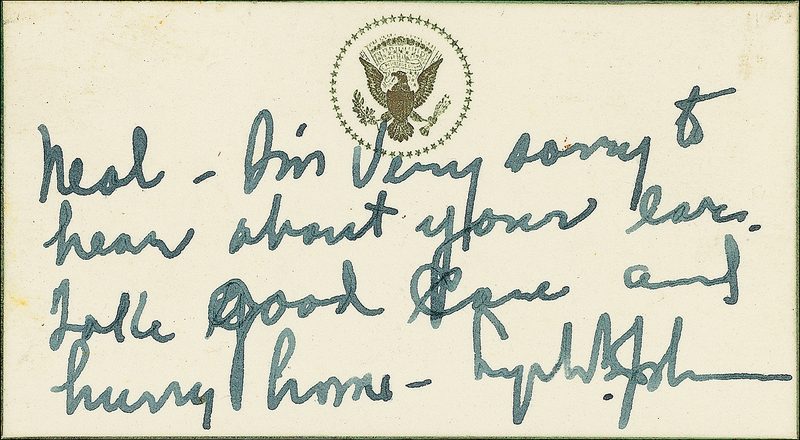 Neal – I'm Very sorry to
hear about your ear.
Take good Care and
hurry home – Lyndon B. Johnson